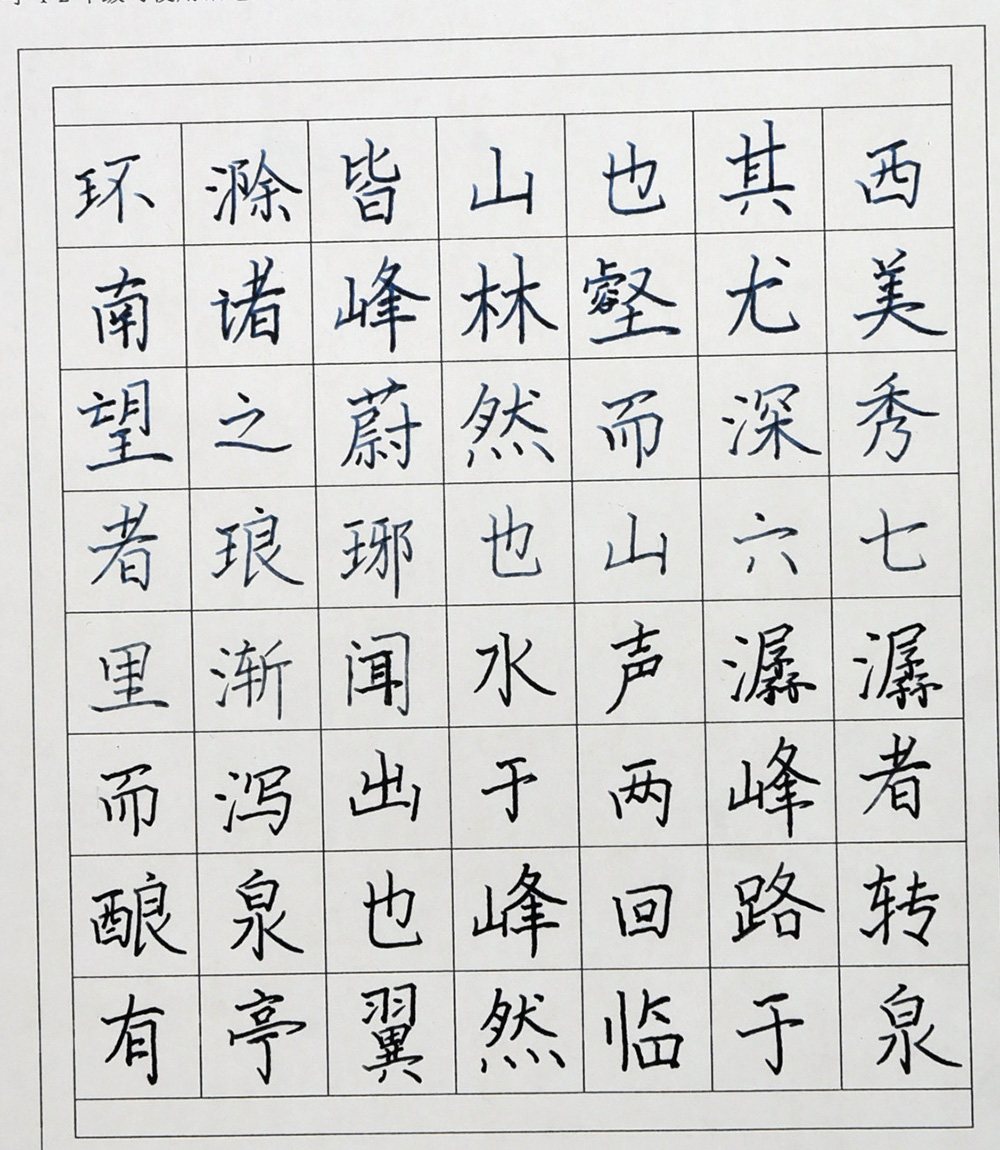 环滁皆山也其西
南诸峰林壑尤美
望之蔚然而深秀
者琅琊也山六七
里渐闻水声潺潺
而泻出于两峰者
酿泉也峰回路转
有亭翼然临于泉